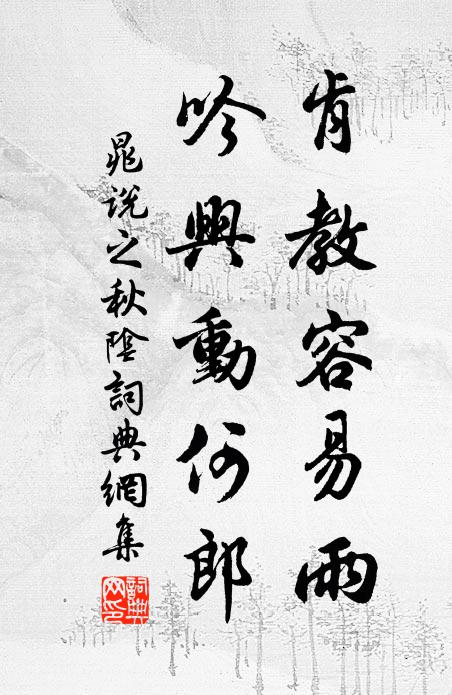 肯教容易雨
吟興動何郎
晁説之秋陰詞典網集
詞典網印